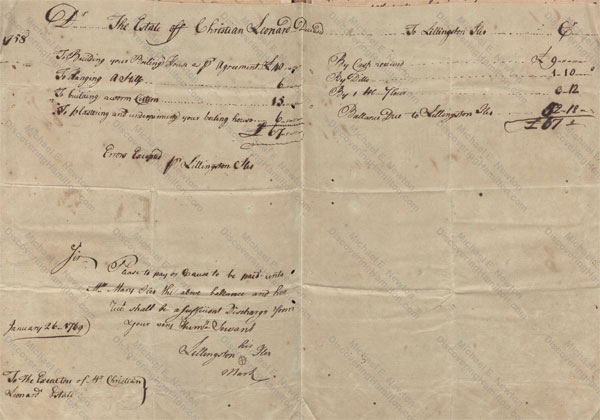 Dr The Estate off Christian Leonard Deceased To Lillingston Iles Cr
1758
To Building your Boiling house as pr Agreement £ 40
To Hanging a Still 6
To building a worm Cistern 15
To plastering and underpinning your boiling house 6
£ 67
By Cash received £ 9
By Ditto 1-10
By 1 bb. Flour 12
Ballance Due to Lillingston Iles
£ 67
Errors Excepted pr Lillingston Iles
Sir
Please to pay or Cause to be paid unto
Mrs Mary Iles the above ballance and her
Rect shall be a sufficient Discharge from
Your very Humb Servant
January 26-1760
Lillingston his Iles
Mark
To the Executors of Mr Christian
Leonards Estate